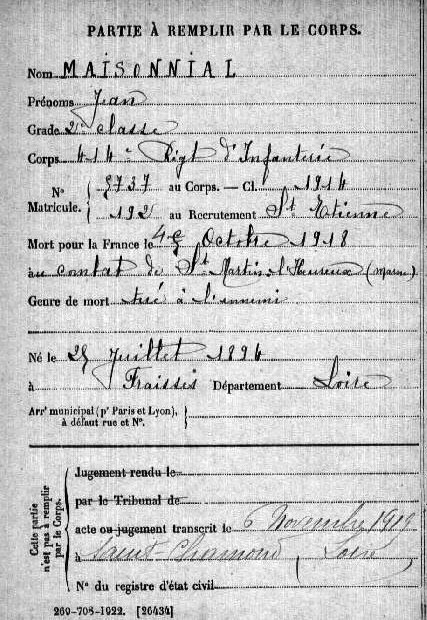 PARTIE À REMPLIR PAR LE CORPS.
Nom MAISONNIAL
Prénoms Jean
Grade 2e classe
Corps 414e Régt d'Infanterie
N° Matricule. 8737 au Corps. — Cl. 1914
192 au Recrutement St Etienne
Mort pour la France le Octobre 1918
au combat de St Martin l'Heureux (Marne).
Genre de mort tué à l'ennemi
Né le Juillet 1894
à Fraisses Département Loire
Arrt municipal (pr Paris et Lyon),
à défaut rue et N°.
Cette partie
n'est pas à remplir
par le Corps.
Jugement rendu le
par le Tribunal de
acte ou jugement transcrit le 6 Novembre 1919
à Saint-Chamond, Loire
N° du registre d'état civil
269-708-1922. [26434]